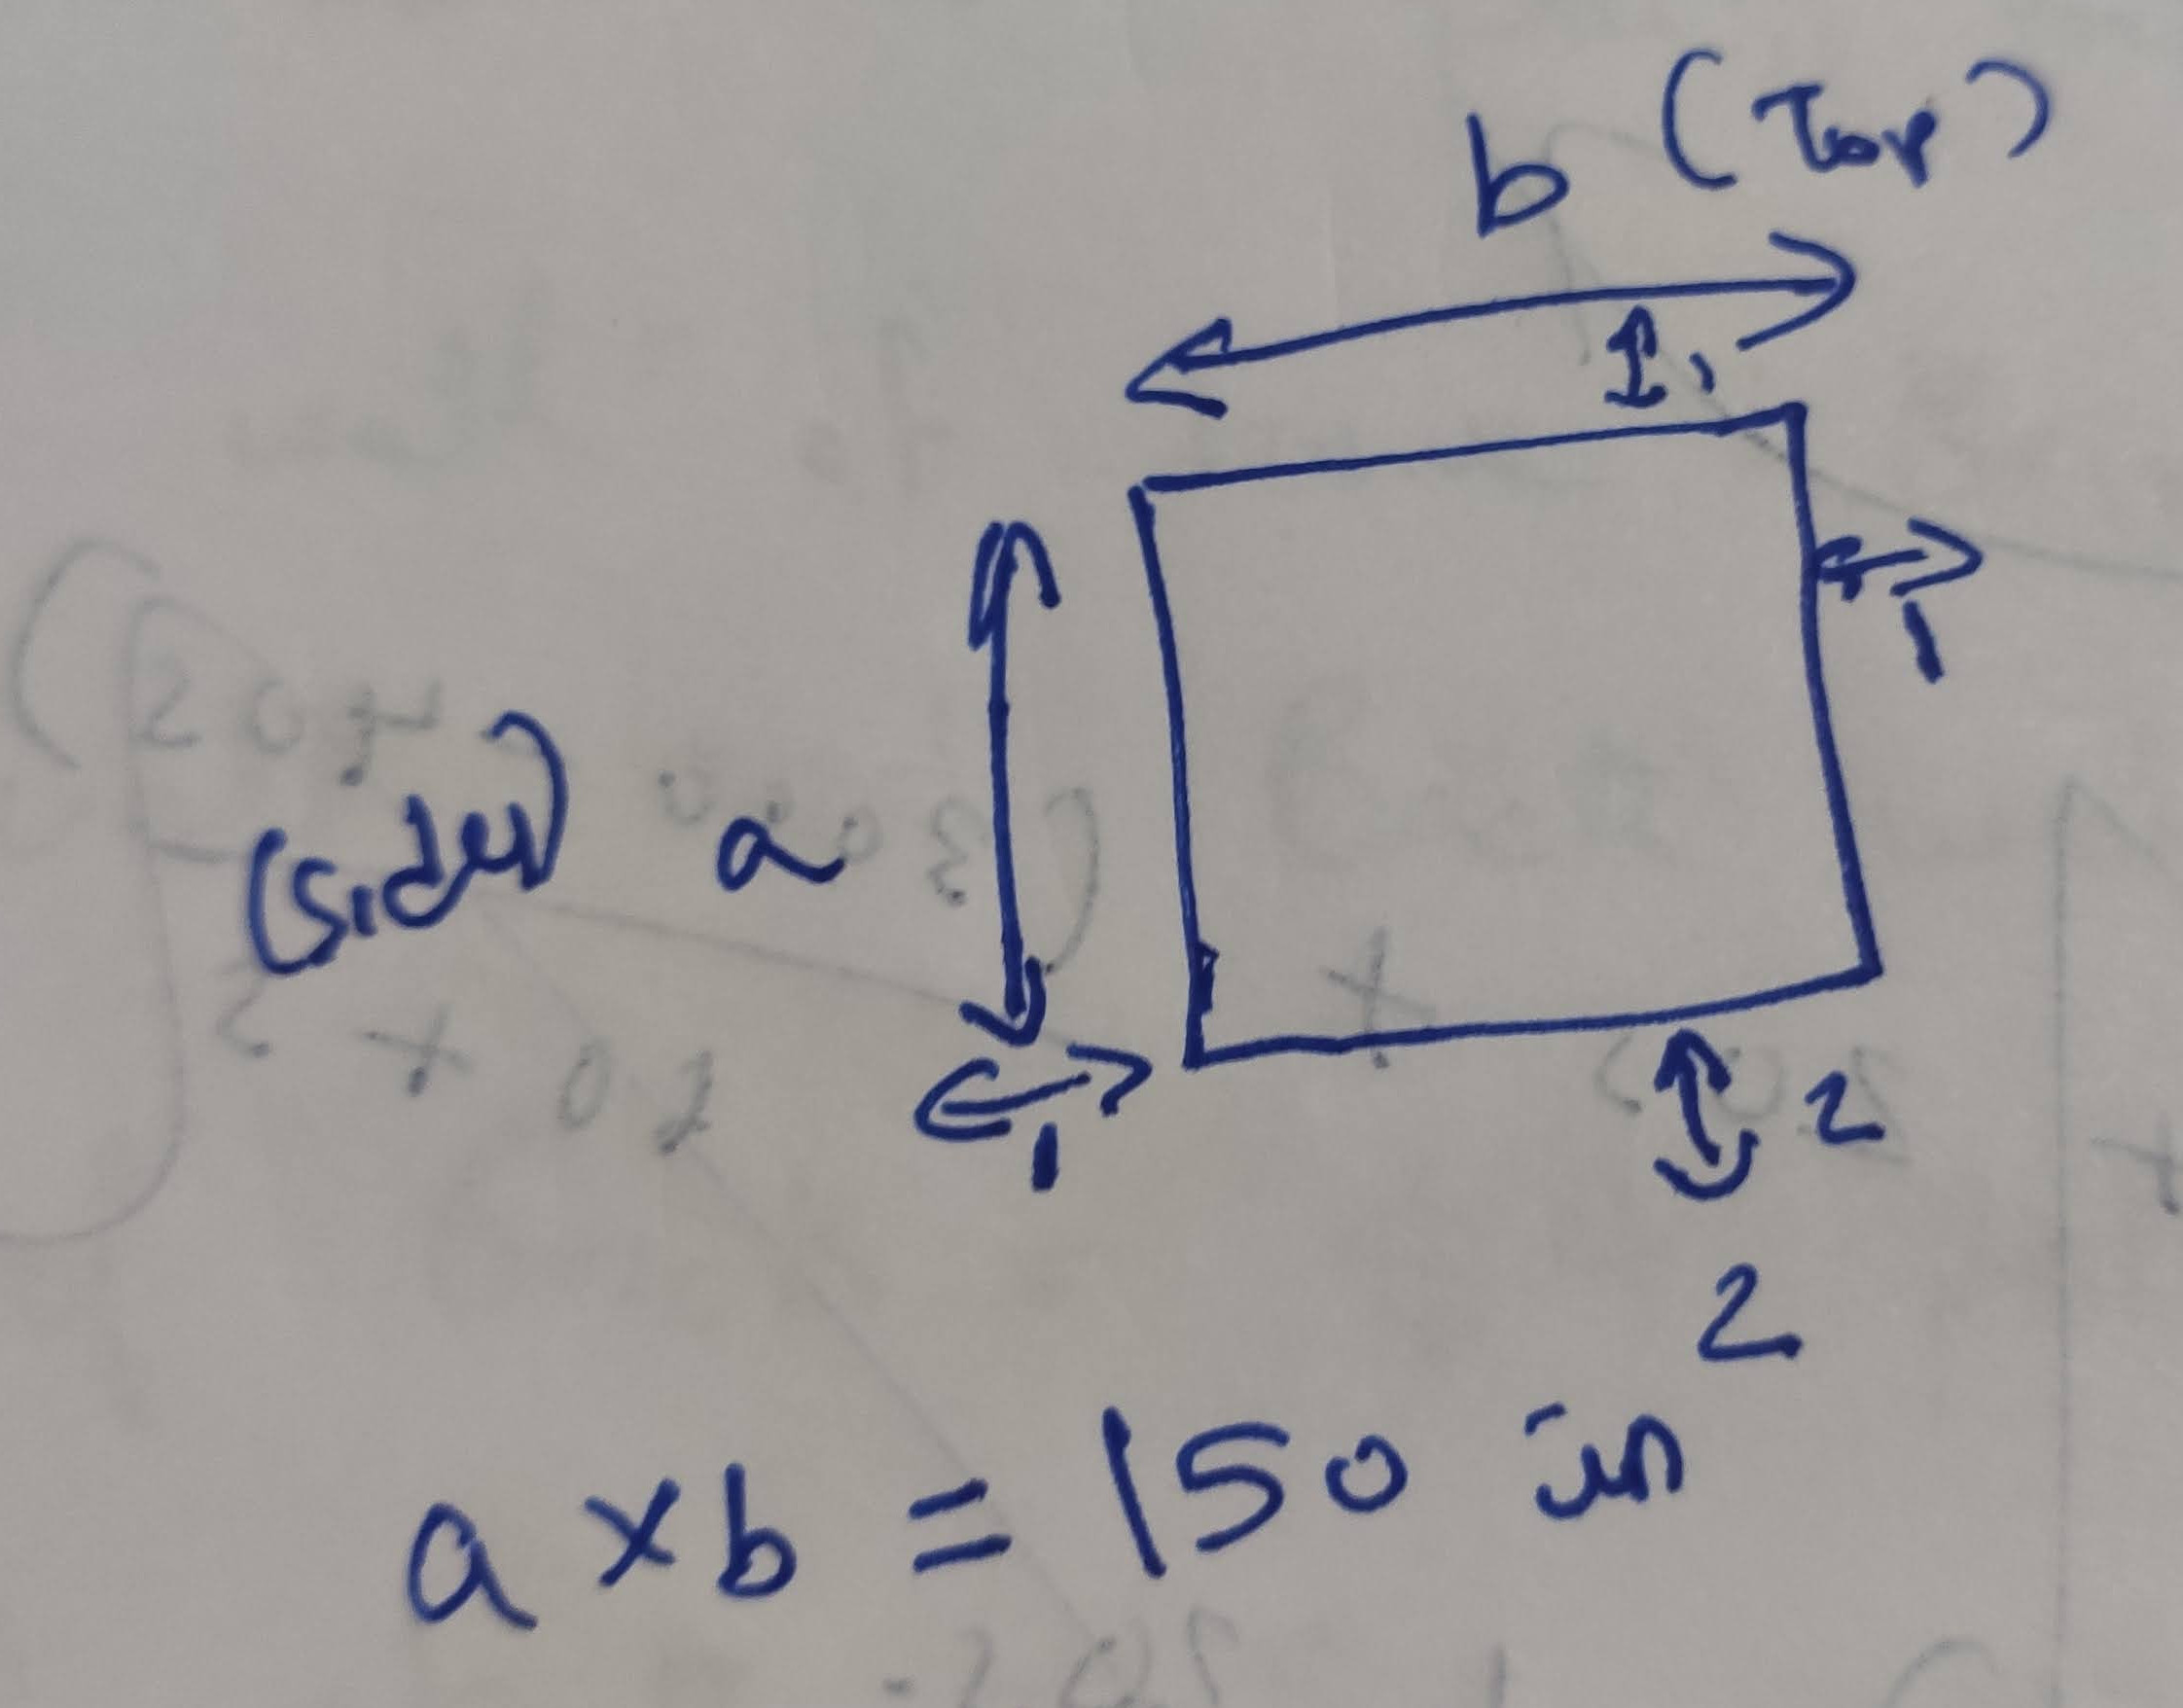 b (Top)
1
1
(sides) a
1
2
2
a × b = 150 in